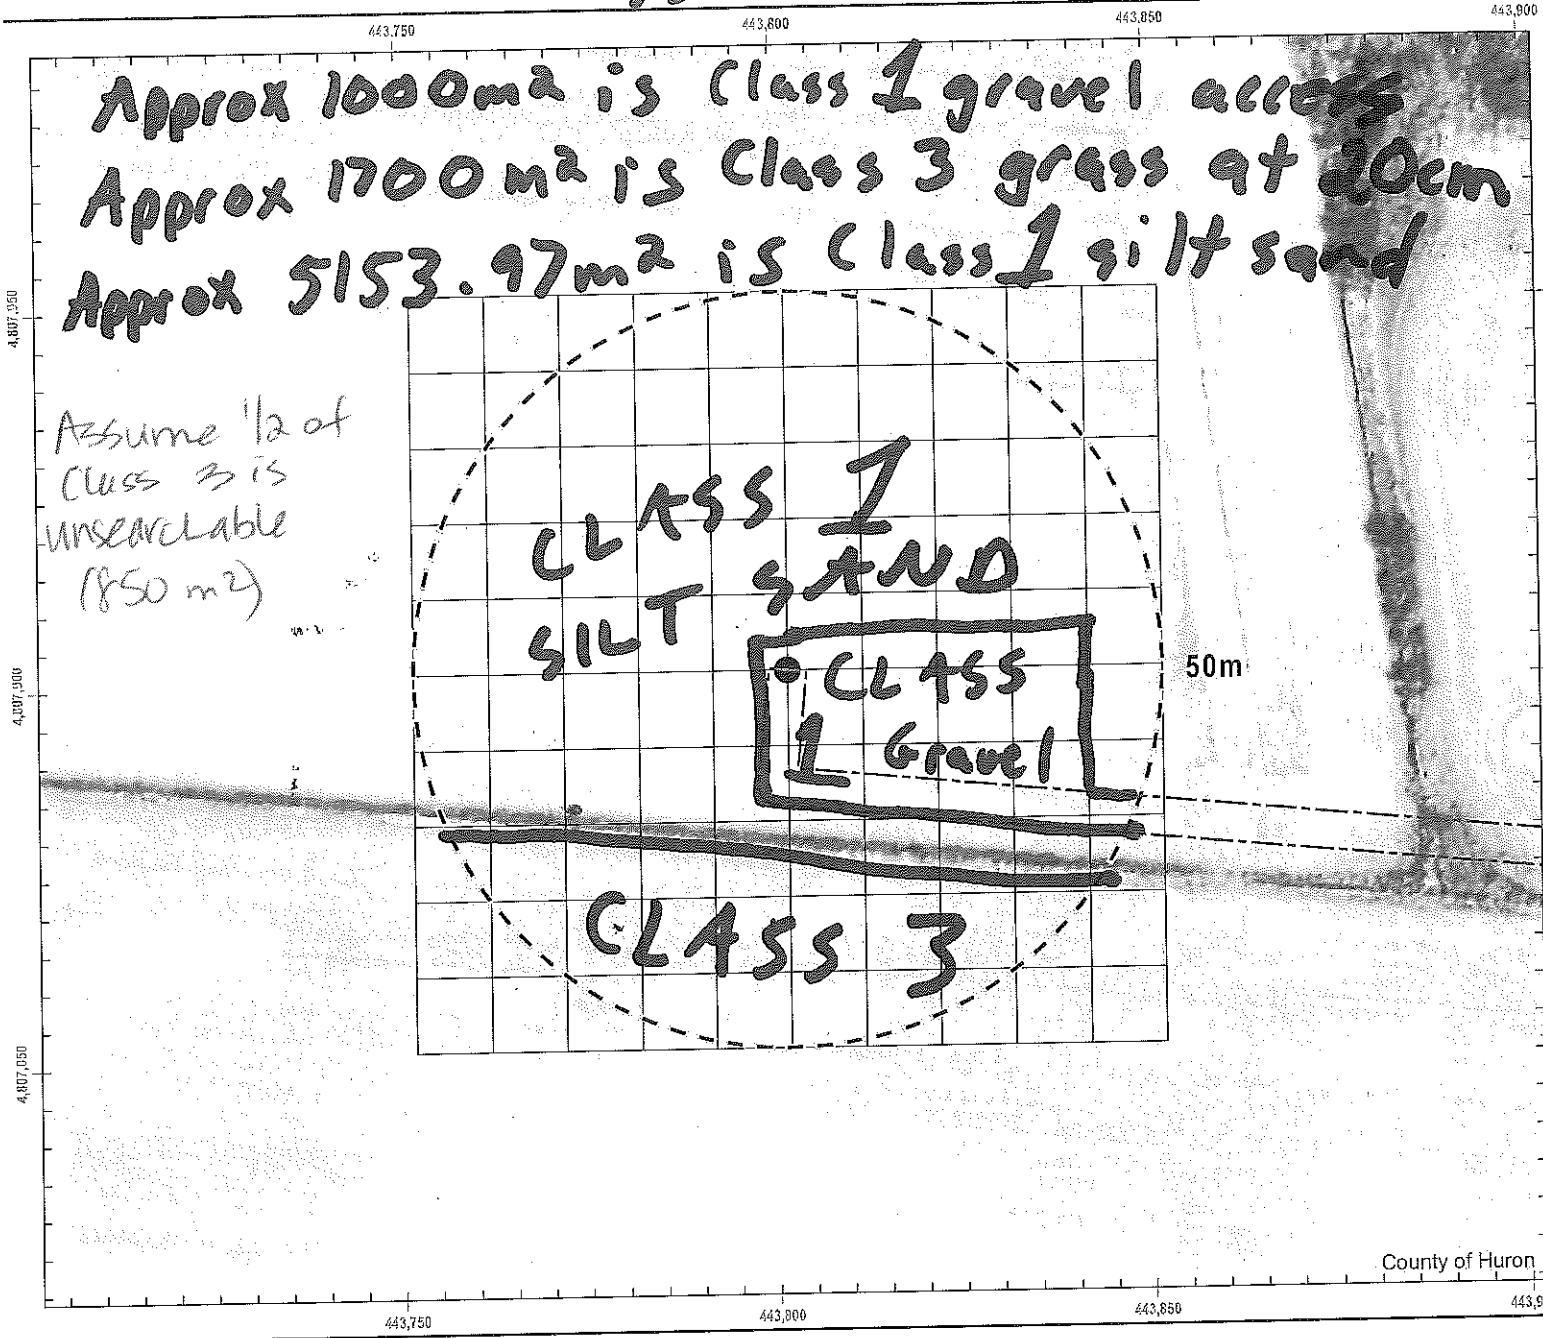 443,750 443,800 443,850 443,900
Approx 1000m² is Class 1 gravel access
Approx 1700m² is Class 3 grass at 20cm
Approx 5153.97m² is Class 1 silt sand
4,807,950
Assume 1/2 of
Class 3 is
unsearchable
(850 m²)
CLASS 1
SILT SAND
CLASS
1 Gravel
50m
4,807,900
CLASS 3
4,807,850
County of Huron
443,750 443,800 443,850 443,9